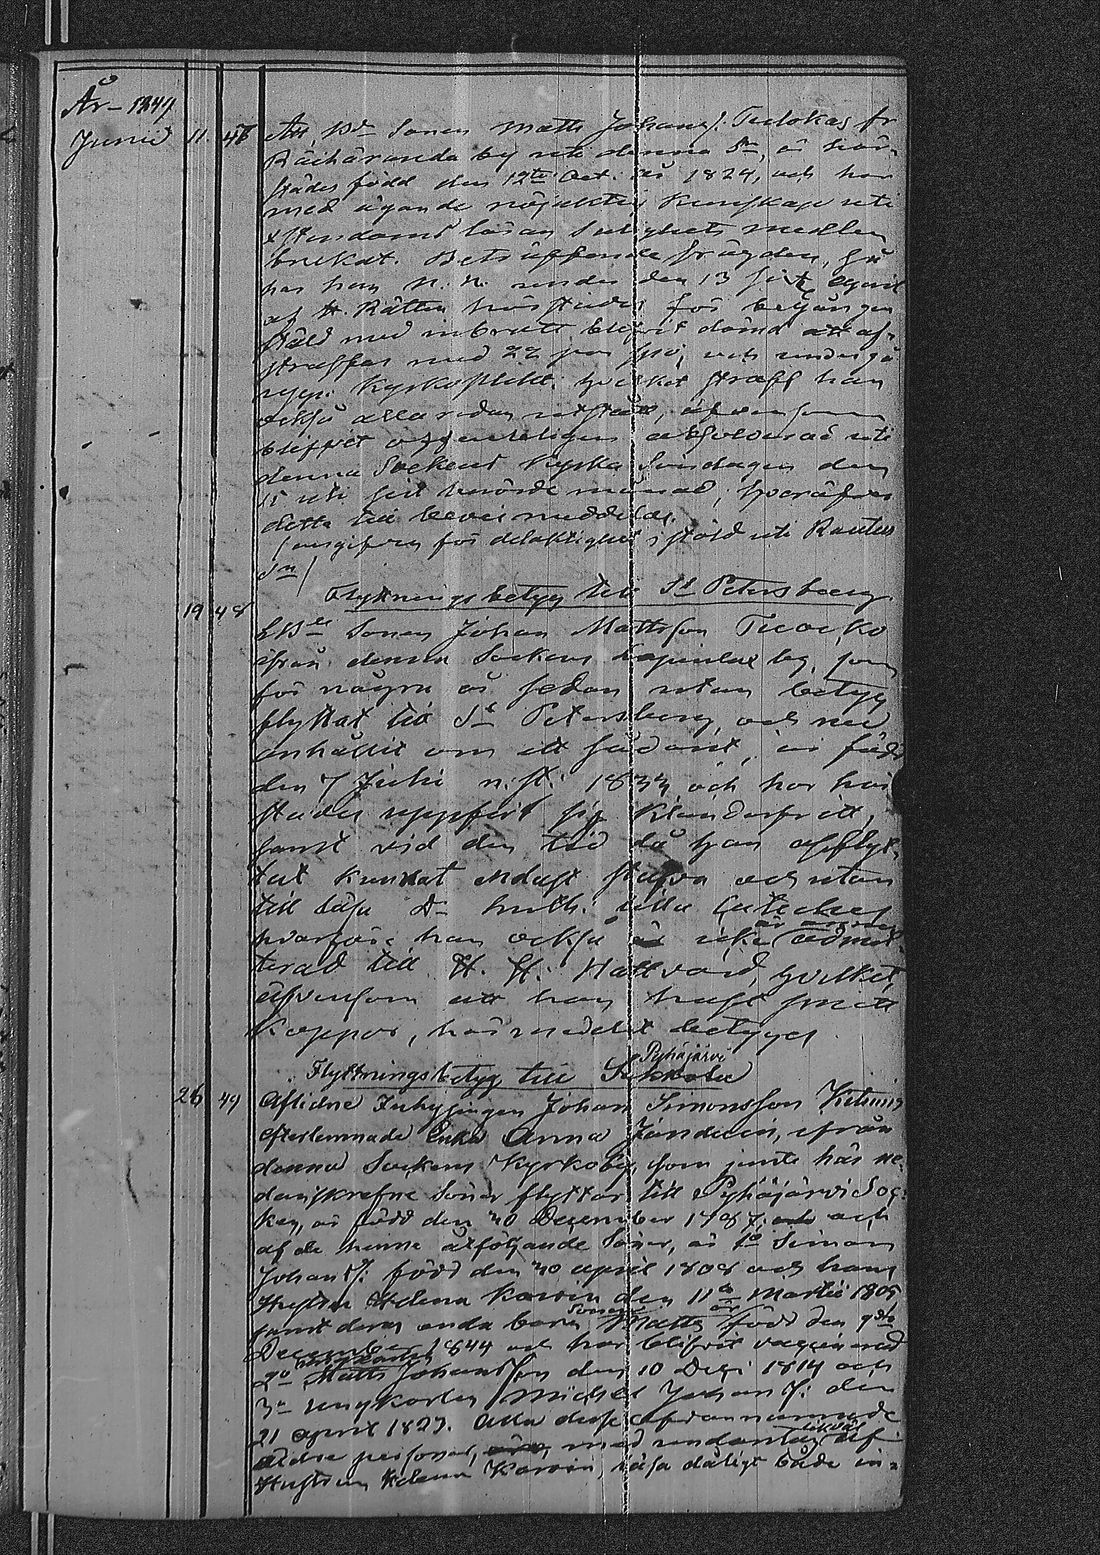 År 1849
Junii 11 47 Att Bd. Sonen Matts Johans. Tuokas fr
by uti denna Sn, är här-
städes född den 12te Oct. år 1824, och har
med ägande nöjaktig Kunskap uti
Xstendoms läran Salighets medlen
brukat. Beträffande frägden, så
har han n. n. under den 13 sist. April
af H. Rätten härstädes för begången
stöld med inbrott blifvit dömd att af-
straffas med 22 par spö, och undergå
upp. Kyrkoplikt. hvilket straff han
också allaredan utstått, äfvensom
blifvit offenteligen absolverad uti
denna Sockens Kyrka Söndagen den
15 uti sist berörde månad; hvaröfver
detta till bevis meddelas.
(angifven för delaktighet i stöld uti Rautus
Sn)
Flyttningsbetyg till St Petersburg
19 48 Bde Sonen Johan Mattsson Tuocko
ifrån denna Sockens by, som
för några år sedan utan betyg
flyttat till St Petersburg, och nu
anhållit om ett sådant, är född
den 7 Julii n. st. 1833 och har här
städes uppfört sig klanderfritt,
samt vid den tid då han afflyt-
tat kunnat endast stafva och utan
till läsa Dr Luth. lilla Cateches
hvarföre han också är icke är annu admit-
terad till H. H. Nattvard, hvilket,
äfvensom att han haft smitt
Koppor, härmedelst betygas
Flyttningsbetyg till Sakkola Pyhäjärvi
26 49 Aflidne Inhysingen Johan Simonsson
efterlemnade Enka Anna Jöndein, ifrån
denna Sockens Kyrkoby, som jemte här ne-
danskrefne Söner flyttar till Pyhäjärvi Soc-
ken, är född den 30 December 1787, och
af de henne åtföljande Söner, är 1o Simon
Johans S: född den 30 April 1808 och hans
Hustru Helena Karvin den 11te Martii 1805
samt deras enda barn Sonen Matts är född den 9de
December 1844 och har blifvit vaccinerad
2o ungkarlen Matts Johansson den 10 Dec. 1814 och
3o ungkarlen Michel Johans S: den
21 April 1823. Alla desse ofvannämnde
äldre personer, med undantag likväl af
Hustrun Helena Karvin, läsa dåligt både in-